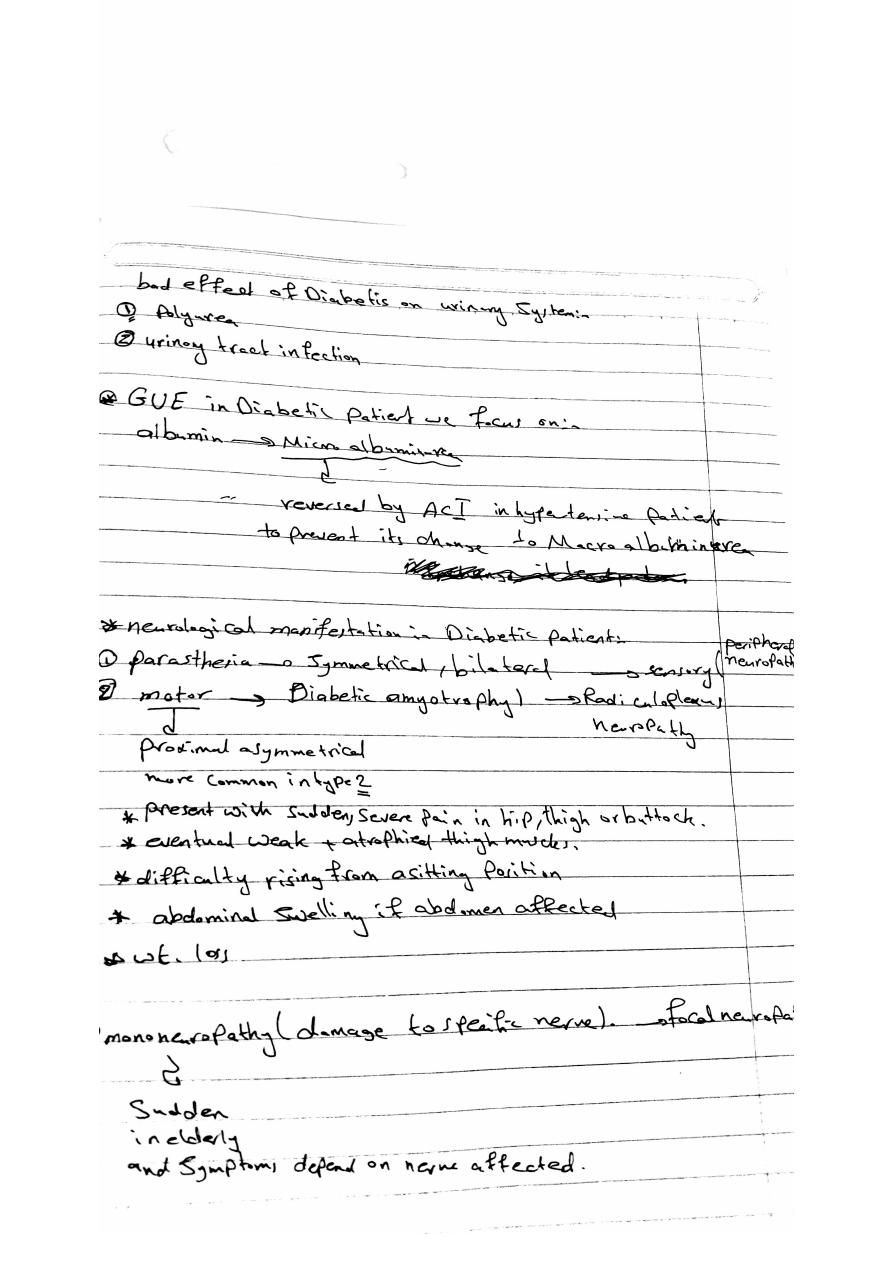 bad effect of Diabetis on urinary System:-
① Polyurea
② urinary tract infection
* GUE in Diabetic patient we focus on:-
albumin → Micro albuminurea
reversed by ACI in hypertensive patients
to prevent its change to Macro albuminurea
* neurological manifestation in Diabetic patient:-
① parasthesia → Symmetrical, bilateral → sensory (peripheral
neuropath
② motor → Diabetic amyotrophy) → Radiculoplexus
neuropathy
proximal asymmetrical
more common in type 2
* present with sudden, severe pain in hip, thigh or buttock.
* eventual weak + atrophied thigh muscles.
* difficulty rising from a sitting position
* abdominal swelling if abdomen affected
* wt. loss
mononeuropathy (damage to specific nerve). → focal neuropa
Sudden
in elderly
and Symptoms depend on nerve affected.